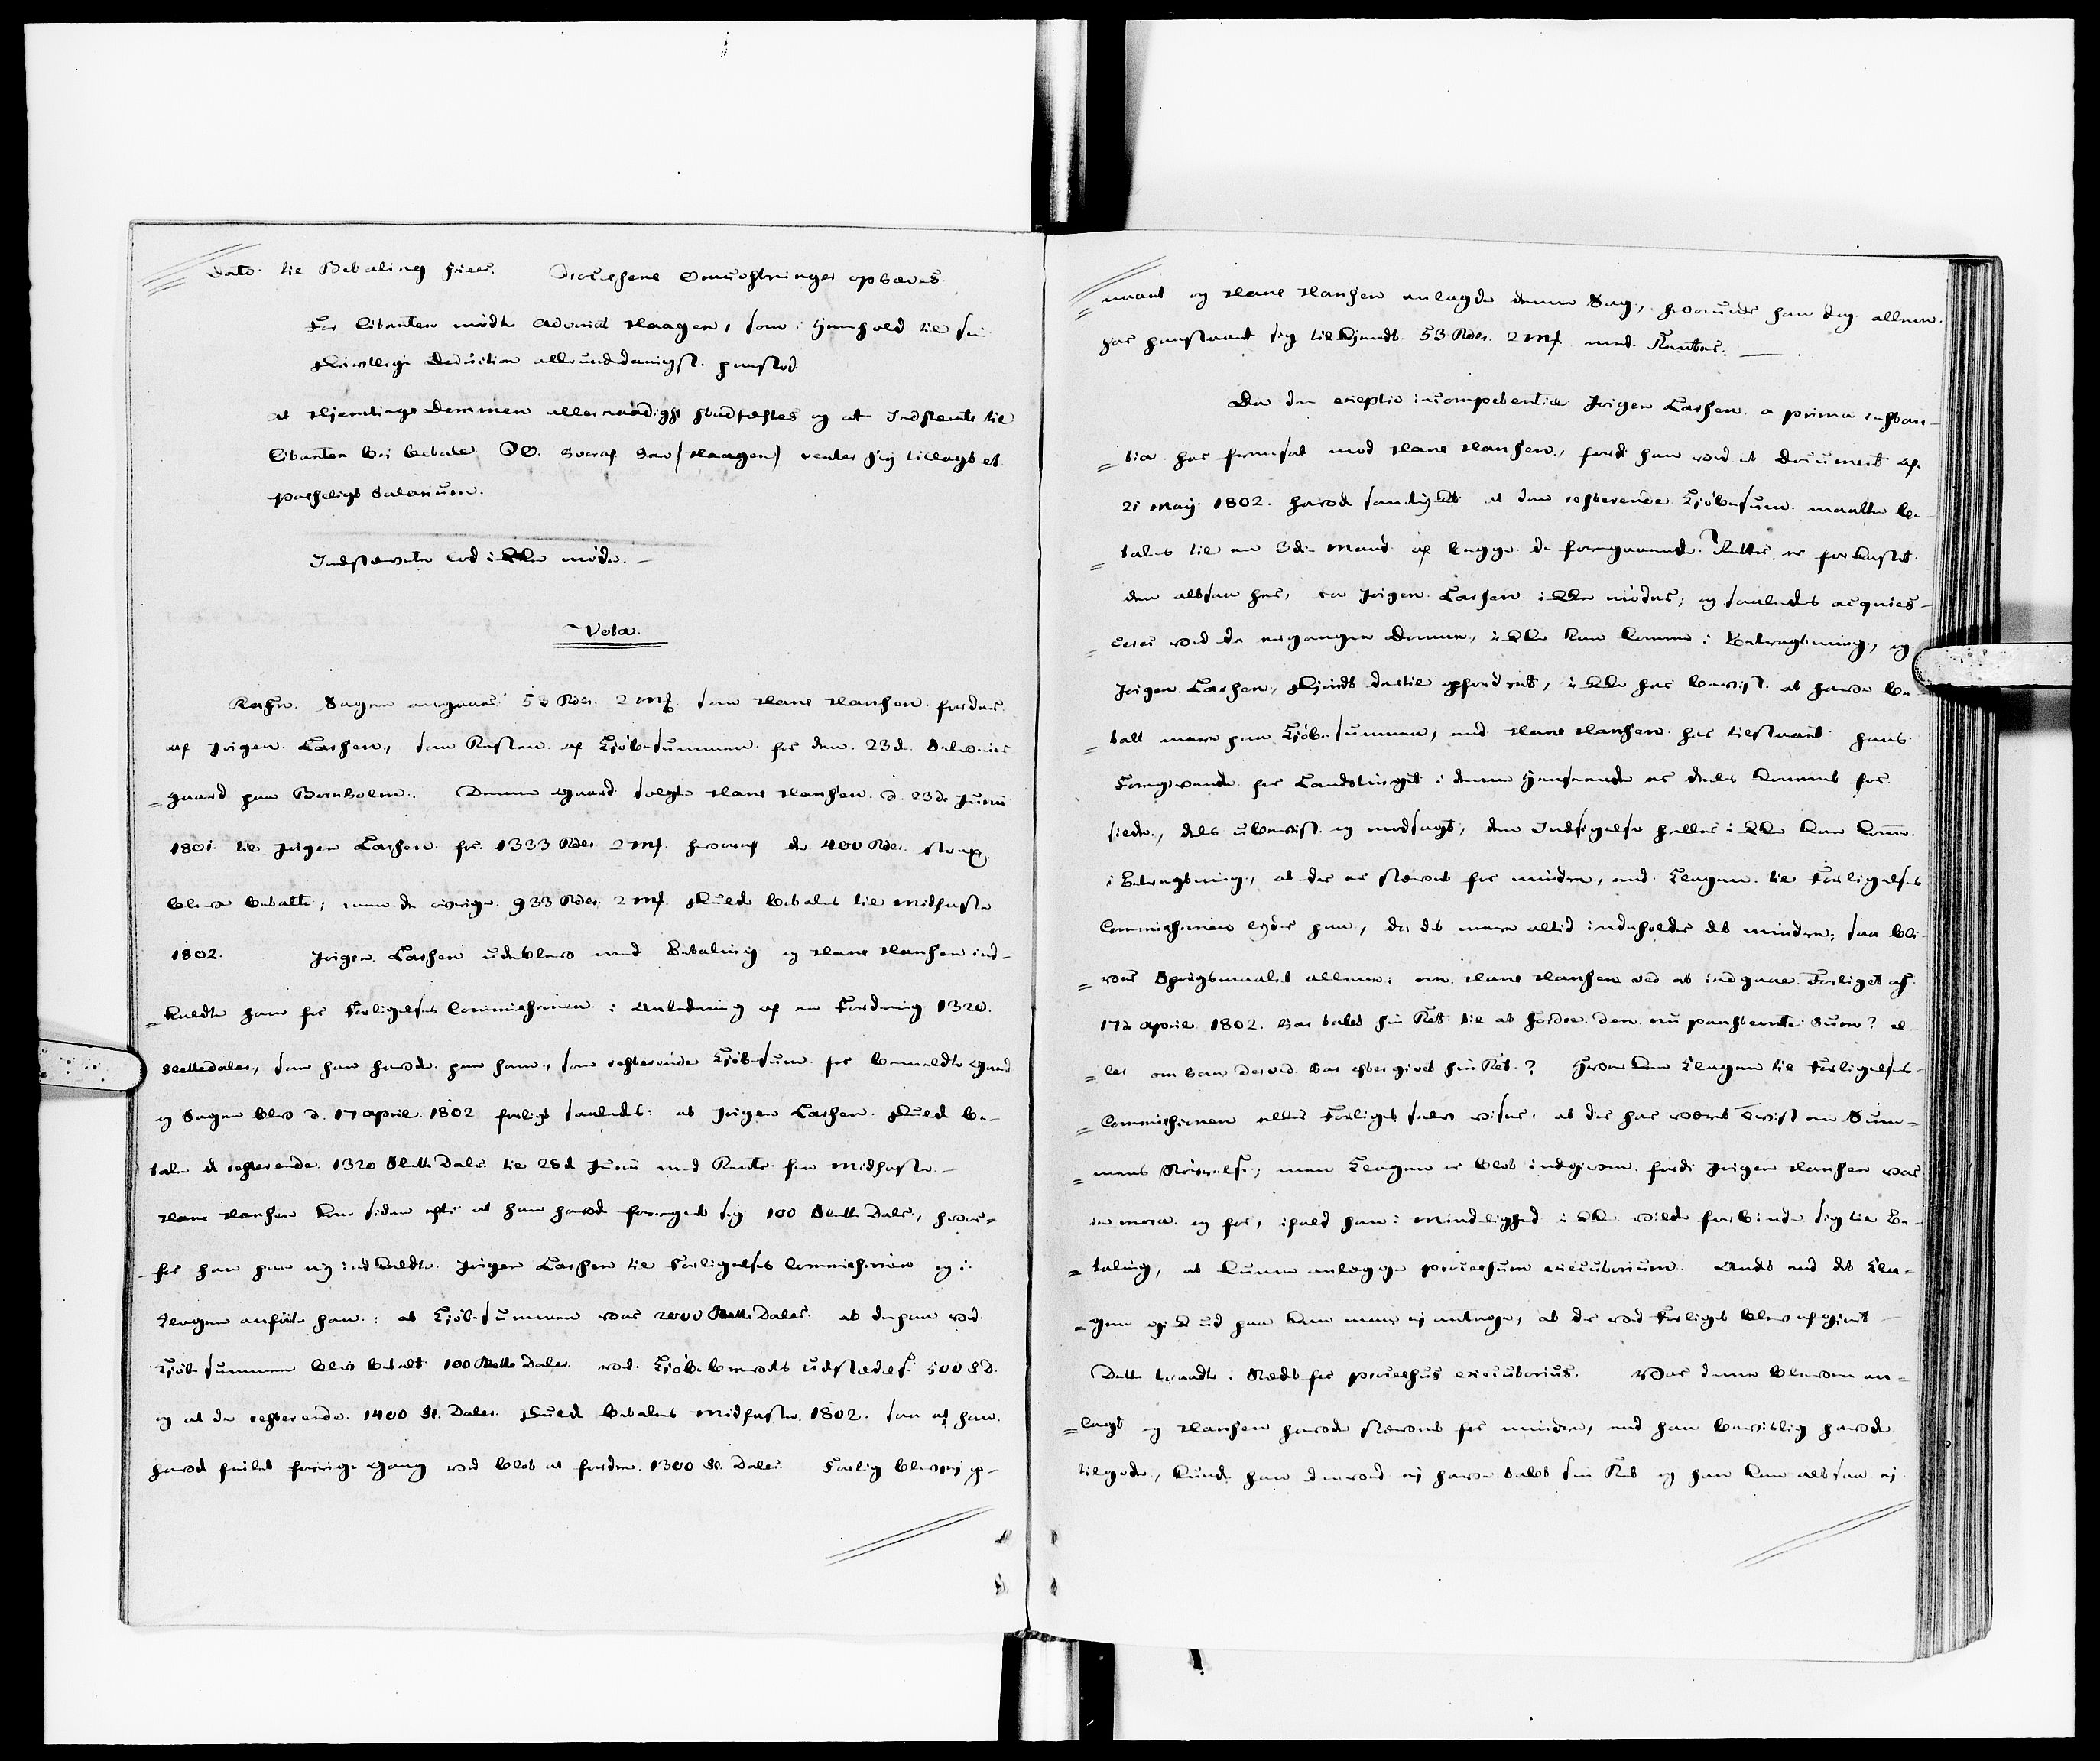 Dato til Betaling skeer. Processens Omkostninger ophæves.
For Citanten mødte Advocat Haagen, som i Henhold til sin
skrivtlige Deduction allerunderdanigst paastod
at Hjemtings Dommen allernaadigst stadfæstes og at Indstevnte til
Citanten bør betale hvoraf han (Haagen) venter sig tillagt et
passeligt Salarium.
Indstævnte lod ikke møde. —
Vota.
Sagen angaaer 53 Rdr. 2 Mk. som Hans Hansen fordrer
af Jørgen Larsen, som Resten af Kjøbesummen for den 23de Selveier
= gaard paa Bornholm. Denne Gaard solgte Hans Hansen d. 23de Junii
1801 til Jørgen Larsen for 1333 Rdr. 2 Mk. hvoraf de 400 Rdr. strax
bleve betalte; men de øvrige 933 Rdr. 2 Mk. skulde betales til Midfaste
1802. Jørgen Larsen udeblev med Betaling og Hans Hansen ind-
= kaldte ham for Forligelses Commissionen i Anledning af en Fordring 1320
Slettedaler, som han havde paa ham, som resterende Kjøbesum for bemeldte Gaard
og Sagen blev d. 17 April 1802 forligt saaledes: at Jørgen Larsen skulde be-
tale de resterende 1320 Slette Daler til 28de Junii med Rente fra Midfaste. —
Hans Hansen kom siden efter at han havde forregnet sig 100 Slette Daler, hvor-
for han paa ny indkaldte Jørgen Larsen til Forligelses Commissionen og i
Klagen anførte han: at Kjøbesummen var 2000 Slette Daler at der paa
Kjøbesummen blev betalt 100 Slette Daler ved Kjøbebrevets Udstædelse 500 S.D.
og at de resterende 1400 Sl. Daler skulde betales Midfaste 1802. saa at han
havde feilet forrige Gang ved blot at fordre 1300 Sl. Daler. Forlig blev ej op-
naaet og Hans Hansen anlagde denne Sag, hvorunder han dog allene
har paastaaet sig tilkjendt 53 Rdr. 2 Mk. med Renter. —
Da den exceptio incompetentiæ Jørgen Larsen a prima instan-
= tia har fremsat mod Hans Hansen, fordi han ved et Document af
21 May 1802. havde samtykt at den resterende Kjøbesum maatte be-
= tales til en 3die Mand af begge de foregaaende Retter er forkastet
den altsaa her, da Jørgen Larsen ikke møder, og saaledes acquies-
= cerer ved de ergangne Domme, ikke kan komme i Betragtning, og
Jørgen Larsen, skjøndt dertil opfordret, ikke har beviist at have be-
= talt mere paa Kjøbesummen, end Hans Hansen har tilstaaet hans
Foregivende for Landstinget i denne Henseende er deels kommet for
silde, dels ubeviist og modsagt, den Indsigelse heller ikke kan komme
i Betragtning, at der er stævnet for mindre, end Klagen til Forligelses
Commissionen lyder paa, da det mere altid indeholder det mindre; saa bli-
= ver Spørgsmaalet allene: om Hans Hansen ved at indgaae Forliget af
17de April 1802. har tabt sin Ret til at fordre den nu paastevnte Sum? el-
= ler om han derved har eftergivet sin Ret? Hverken Klagen til Forligelses-
= Commissionen eller Forliget selv viser, at der har været Tvist om Sum-
= mens Størrelse; men Klagen er blot indgiven fordi Jørgen Hansen var
in mora og for, ifald han i Mindelighed ikke vilde forbinde sig til Be-
= taling, at kunne anlægge processum executorium. Andet end det Kla-
= gen gik ud paa kan man ej antage, at der ved Forliget blev afgjort
Dette traadte i Stedet for processus executorius. Var denne bleven an-
= lagt og Hansen havde stævnet for mindre, end han beviislig havde
tilgode, kunde han derved ej have tabt sin Ret og han kan altsaa ej